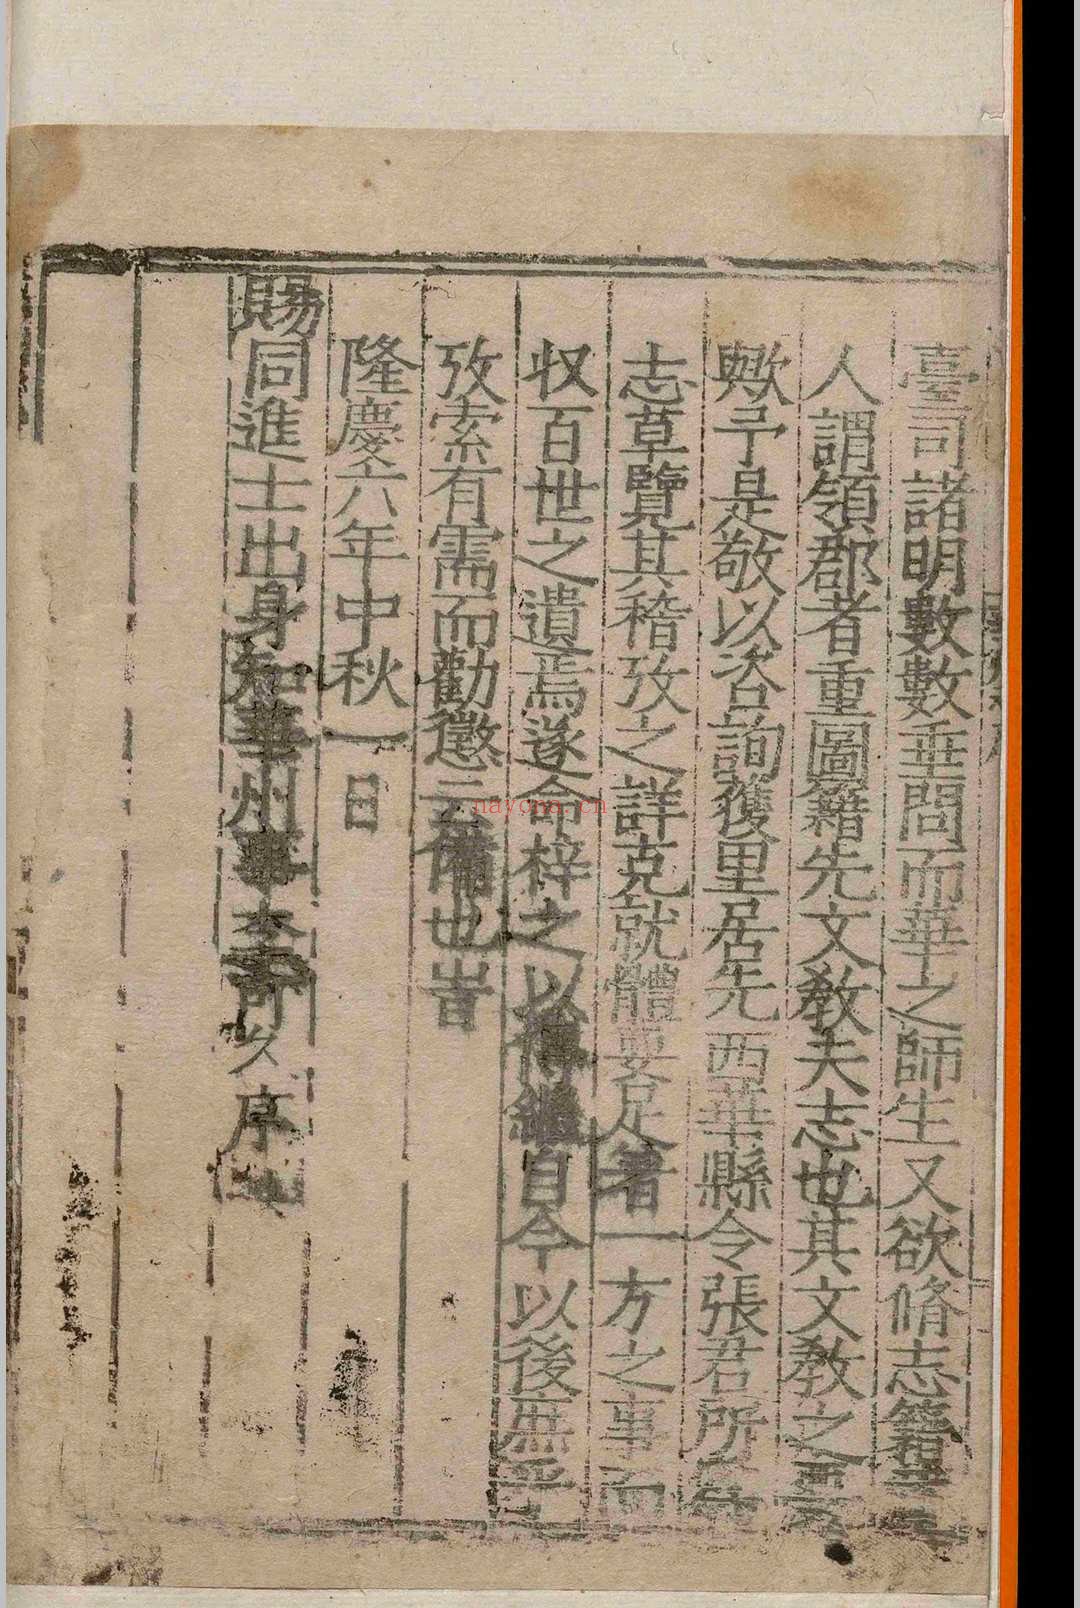 臺司諸明數數垂問而華之師生又欲脩志
人謂領郡者重圖籍先文敎夫志也其文敎之要
歟予是敬以咨詢獲里居先西華縣令張君所
志草覽其稽攷之詳克就體要足著一方之事而
収百世之遺焉遂命梓之以傳繼自今以後庶乎
攷索有需而勸懲云備也旹
隆慶六年中秋一日
賜同進士出身知華州事李可久序
nayona.cn